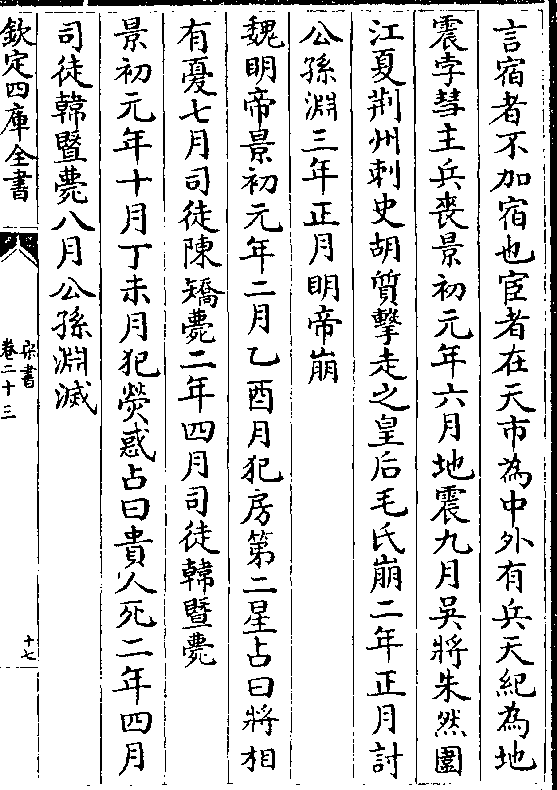 言宿者不加宿也宦者在天市為中外有兵天紀為地
震孛彗主兵喪景初元年六月地震九月吳將朱然圍
江夏荆州刺史胡質擊走之皇后毛氏崩二年正月討
公孫淵三年正月明帝崩
魏明帝景初元年二月乙酉月犯房第二星占曰將相
有憂七月司徒陳矯薨二年四月司徒韓暨薨
景初元年十月丁未月犯熒惑占曰貴人死二年四月
司徒韓暨薨八月公孫淵滅
欽定四庫全書
宋書
卷二十三
十七